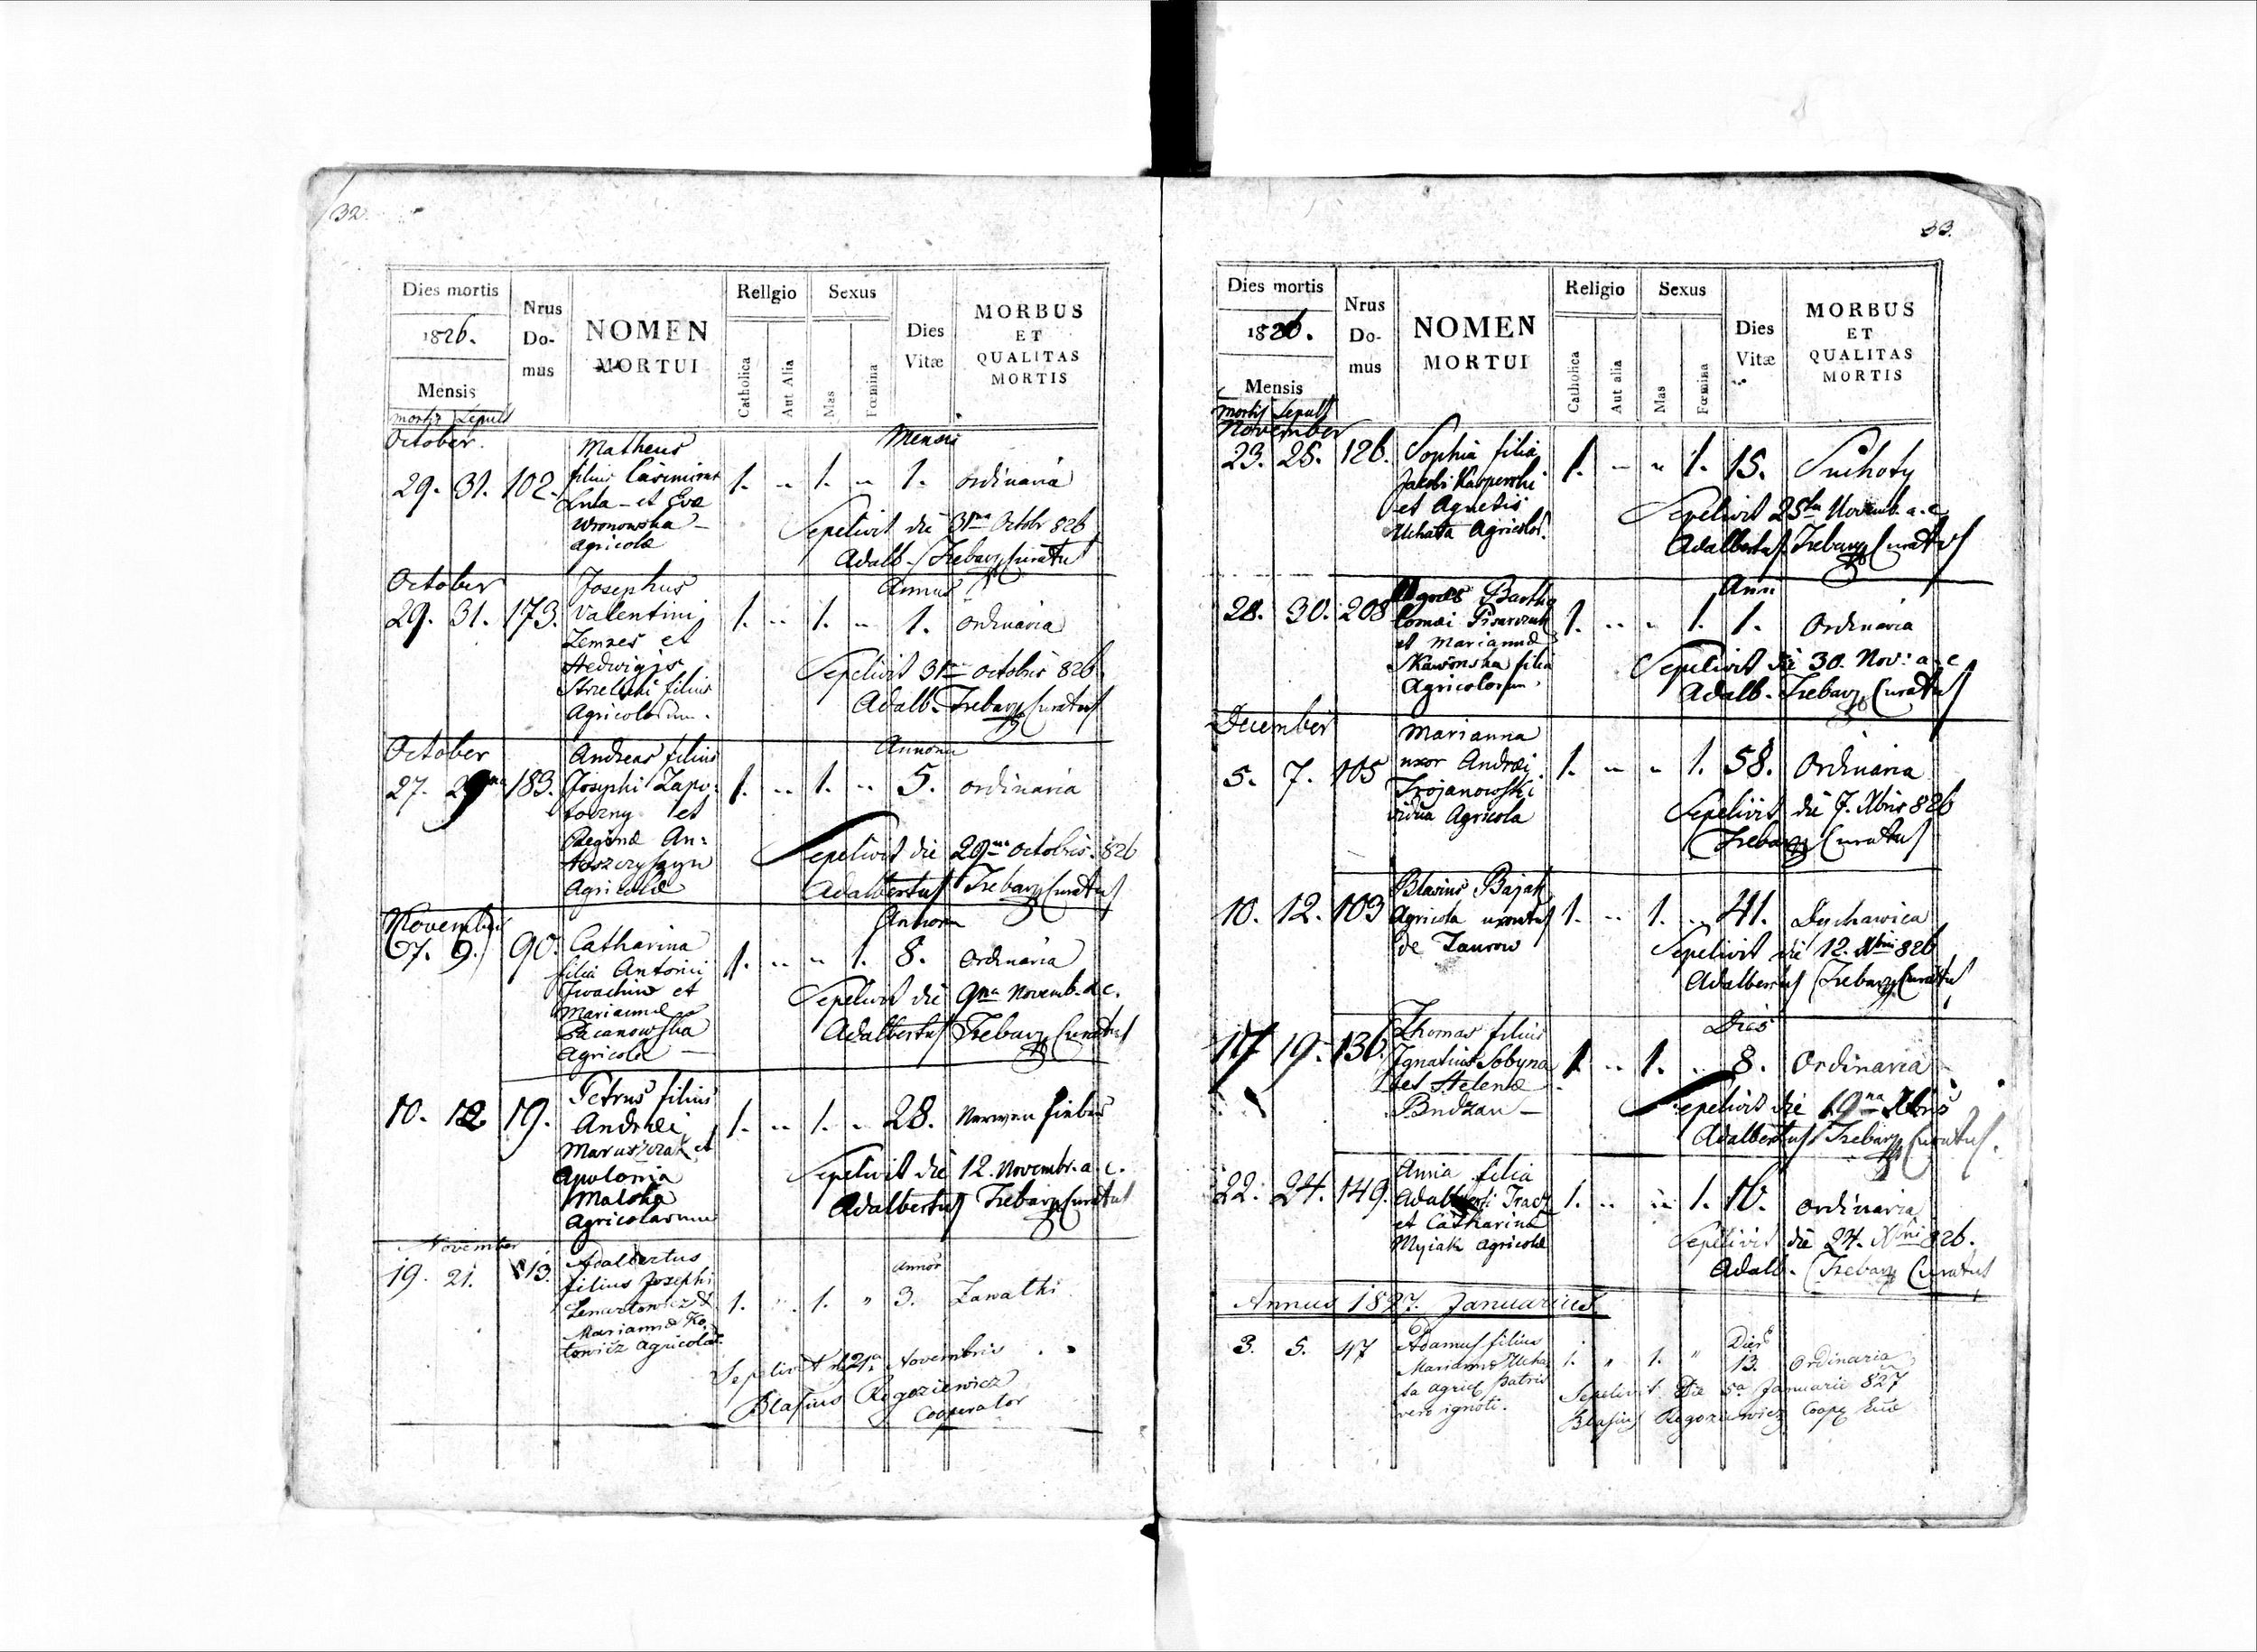 32.
Dies mortis
1826.
Mensis
mortis Sepult
Nrus Do- mus
NOMEN MORTUI
Religio
Catholica
Aut Alia
Sexus
Mas
Fœmina
Dies Vitæ
MORBUS ET QUALITAS MORTIS
October.
29. 31. 102.
Matheus
filius Casimirus
Luta - et Evæ
Wronowska -
Agricolæ
1. .. 1. ..
Mensis
1. ordinaria
Sepelivit die 31ma Octobr 826
Adalb. Trebarz Curatus
October
29. 31. 173.
Josephus
Valentini
Lemzes et
Hedwigis
filius
Agricolarum.
1. .. 1. ..
Annus
1. ordinaria
Sepelivit 31ma octobris 826
Adalb. Trebarz Curatus
October
27. 29na 183.
Andreas filius
Josephi Zapo-
toczny et
Reginæ An:
toszczyszyn
Agricolæ
1. .. 1. ..
Annorum
5. ordinaria
Sepelivit die 29na octobris. 826
Adalbertus Trebarz Curatus
November
7. 9. 90.
Catharina
filia Antonii
Iwachiw et
Mariannæ
Bacanowska
Agricolæ -
1. .. .. 1.
Annorum
8. ordinaria
Sepelivit die 9na Novemb. a. c.
Adalbertus Trebarz Curatus
10. 12. 19.
Petrus filius
Andræi
Maruszczak et
Apolonia
Malska
Agricolarum
1. .. 1. ..
28. Nerwen fieber
Sepelivit die 12. Novembr. a. c.
Adalbertus Trebarz Curatus
November
19. 21. 13.
Adalbertus
filius Josephi
Lenartowicz &
Mariannæ Ko-
towicz agricolæ
1. " 1. "
Annor
3. Zawalki
Sepelivit d. 21a Novembris
Blasius Rogoziewicz
Cooperator
33.
Dies mortis
1826.
Mensis
mortis Sepult
Nrus Do- mus
NOMEN MORTUI
Religio
Catholica
Aut alia
Sexus
Mas
Fœmina
Dies Vitæ
MORBUS ET QUALITAS MORTIS
November
23. 25. 126.
Sophia filia
Jakobi Kasperski
et Agnetis
Uchata Agricolor.
1. .. .. 1. 15. Suchoty
Sepelivit 25ta Novemb. a. c.
Adalbertus Trebarz Curatus
28. 30. 208
Agnes Bartho
lomæi Pisarczuk
et Mariannæ
Skawinska filia
Agricolorum.
1. .. .. 1.
Anni
1. Ordinaria
Sepelivit die 30. Nov: a. c.
Adalb. Trebarz Curatus
December
5. 7. 105
Marianna
uxor Andræi
Trojanowski
vidua Agricola
1. .. .. 1. 58. Ordinaria
Sepelivit die 7. Xbris 826
Trebarz Curatus
10. 12. 103
Blasius Bajak
Agricola uxoratus
de Taurow
1. .. 1. .. 41. Dychawica
Sepelivit die 12. Xbris 826
Adalbertus Trebarz Curatus
17 19. 136.
Thomas filius
Ignatius Sobyna
et Helenæ
Budzan -
1. .. 1. ..
Dies
8. Ordinaria
Sepelivit die 19na Xbris
Adalbertus Trebarz Curatus.
22. 24. 149.
Anna filia
Adalberti Tracz
et Catharinæ
Mysiak agricolæ
1. .. .. 1. 10. ordinaria
Sepelivit die 24. Xbris 826.
Adalb. Trebarz Curatus
Annus 1827. Januarius.
3. 5. 47
Adamus filius
Mariannæ Ucha-
ta agricol patris
vero ignoti.
1. " 1. "
Dies
13. Ordinaria
Sepelivit Die 5a Januarii 827
Blasius Rogoziewicz Coop